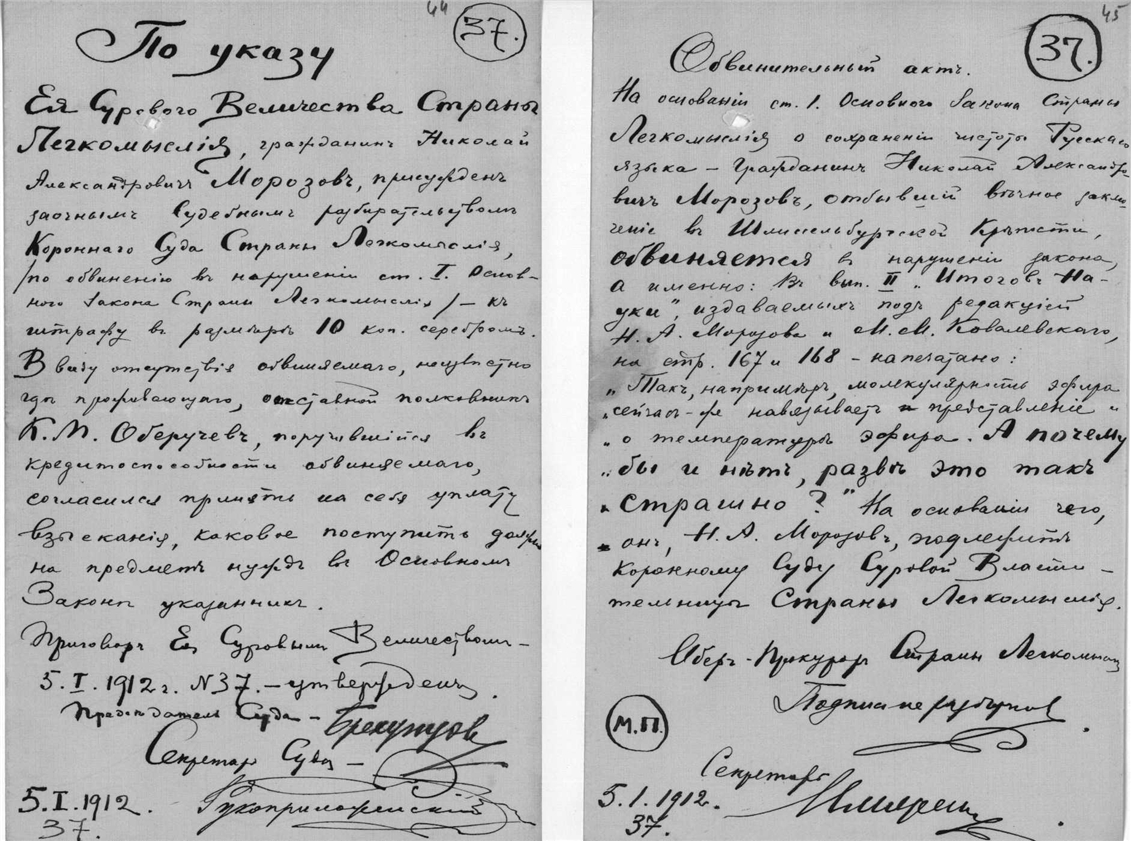 44
37.
По указу
Ея Суроваго Величества Страны
Легкомыслія, гражданинъ Николай
Александровичъ Морозовъ, присужденъ
заочнымъ Судебнымъ разбирательствомъ
Короннаго Суда Страны Легкомыслія,
/по обвиненію въ нарушеніи ст. I. Основ-
ного Закона Страны Легкомыслія/ – къ
штрафу въ размѣрѣ 10 коп. серебромъ.
В виду отсутствія обвиняемаго, неизвѣстно
гдѣ проживающаго, отставной полковникъ
К. М. Оберучевъ, поручившійся въ
кредитоспособности обвиняемаго,
согласился принять на себя уплату
взысканія, каковое поступить должно
на предметъ нуждъ въ Основномъ
Законѣ указанныхъ.
Приговоръ Ея Суровымъ Величествомъ –
5. I. 1912 г. N 37. – утвержденъ.
Предсѣдатель Суда –
Секретарь Суда –
5. I. 1912. Рукоприложейскій
37.
45
37.
Обвинительный актъ.
На основаніи ст. 1. Основного Закона Страны
Легкомыслія о сохраненіи чистоты Русскаго
языка – гражданинъ Николай Александро
вичъ Морозовъ, отбывшій вѣчное заклю
ченіе въ Шлиссельбургской Крѣпости,
обвиняется в нарушеніи закона,
а именно: Въ вып. II „Итоговъ На-
уки", издаваемыхъ подъ редакціей
Н. А. Морозова и М. М. Ковалевскаго,
на стр. 167 и 168 – напечатано:
„Такъ, напримѣръ, молекулярность эфира
„сейчасъ-же навязываетъ и представленіе „
„о температурѣ эфира. А почему
„бы и нѣтъ, развѣ это такъ
„страшно?" На основаніи чего,
онъ, Н. А. Морозовъ, подлежитъ
Коронному Суду Суровой Власти –
тельницы Страны Легкомыслія.
Оберъ-Прокуроръ Страны Легкомыслія
Подпись неразборчив
М.П.
Секретарь
5. 1. 1912.
37.